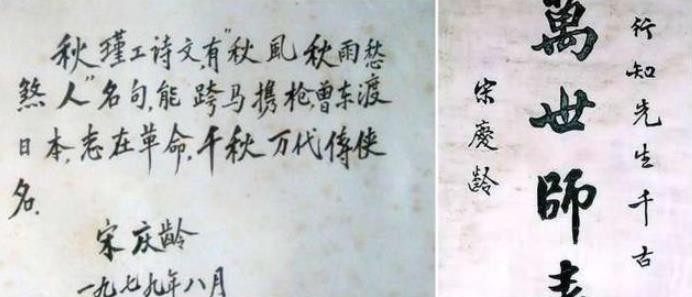 秋瑾工诗文,有"秋風秋雨愁
煞人"名句,能跨马携枪,曾东渡
日本,志在革命,千秋万代傳侠
名.
宋庆龄
一九七九年八月
行知先生千古
萬世師表
宋慶齡